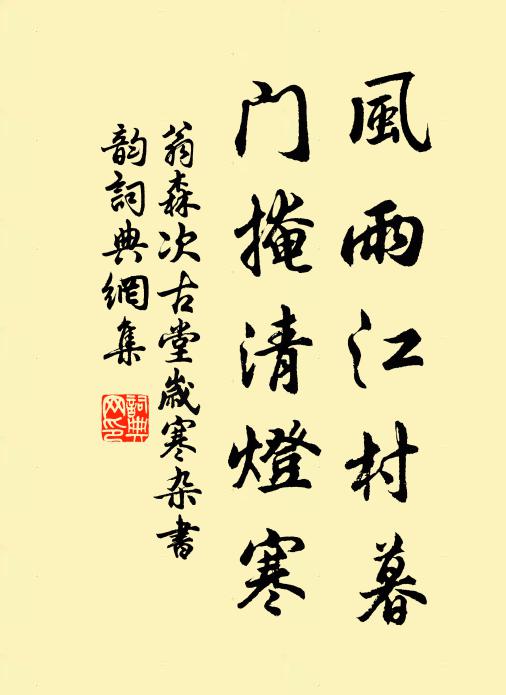 風雨江村暮
门掩清燈寒
翁森次古堂歲寒杂書
韵詞典網集
詞典网印